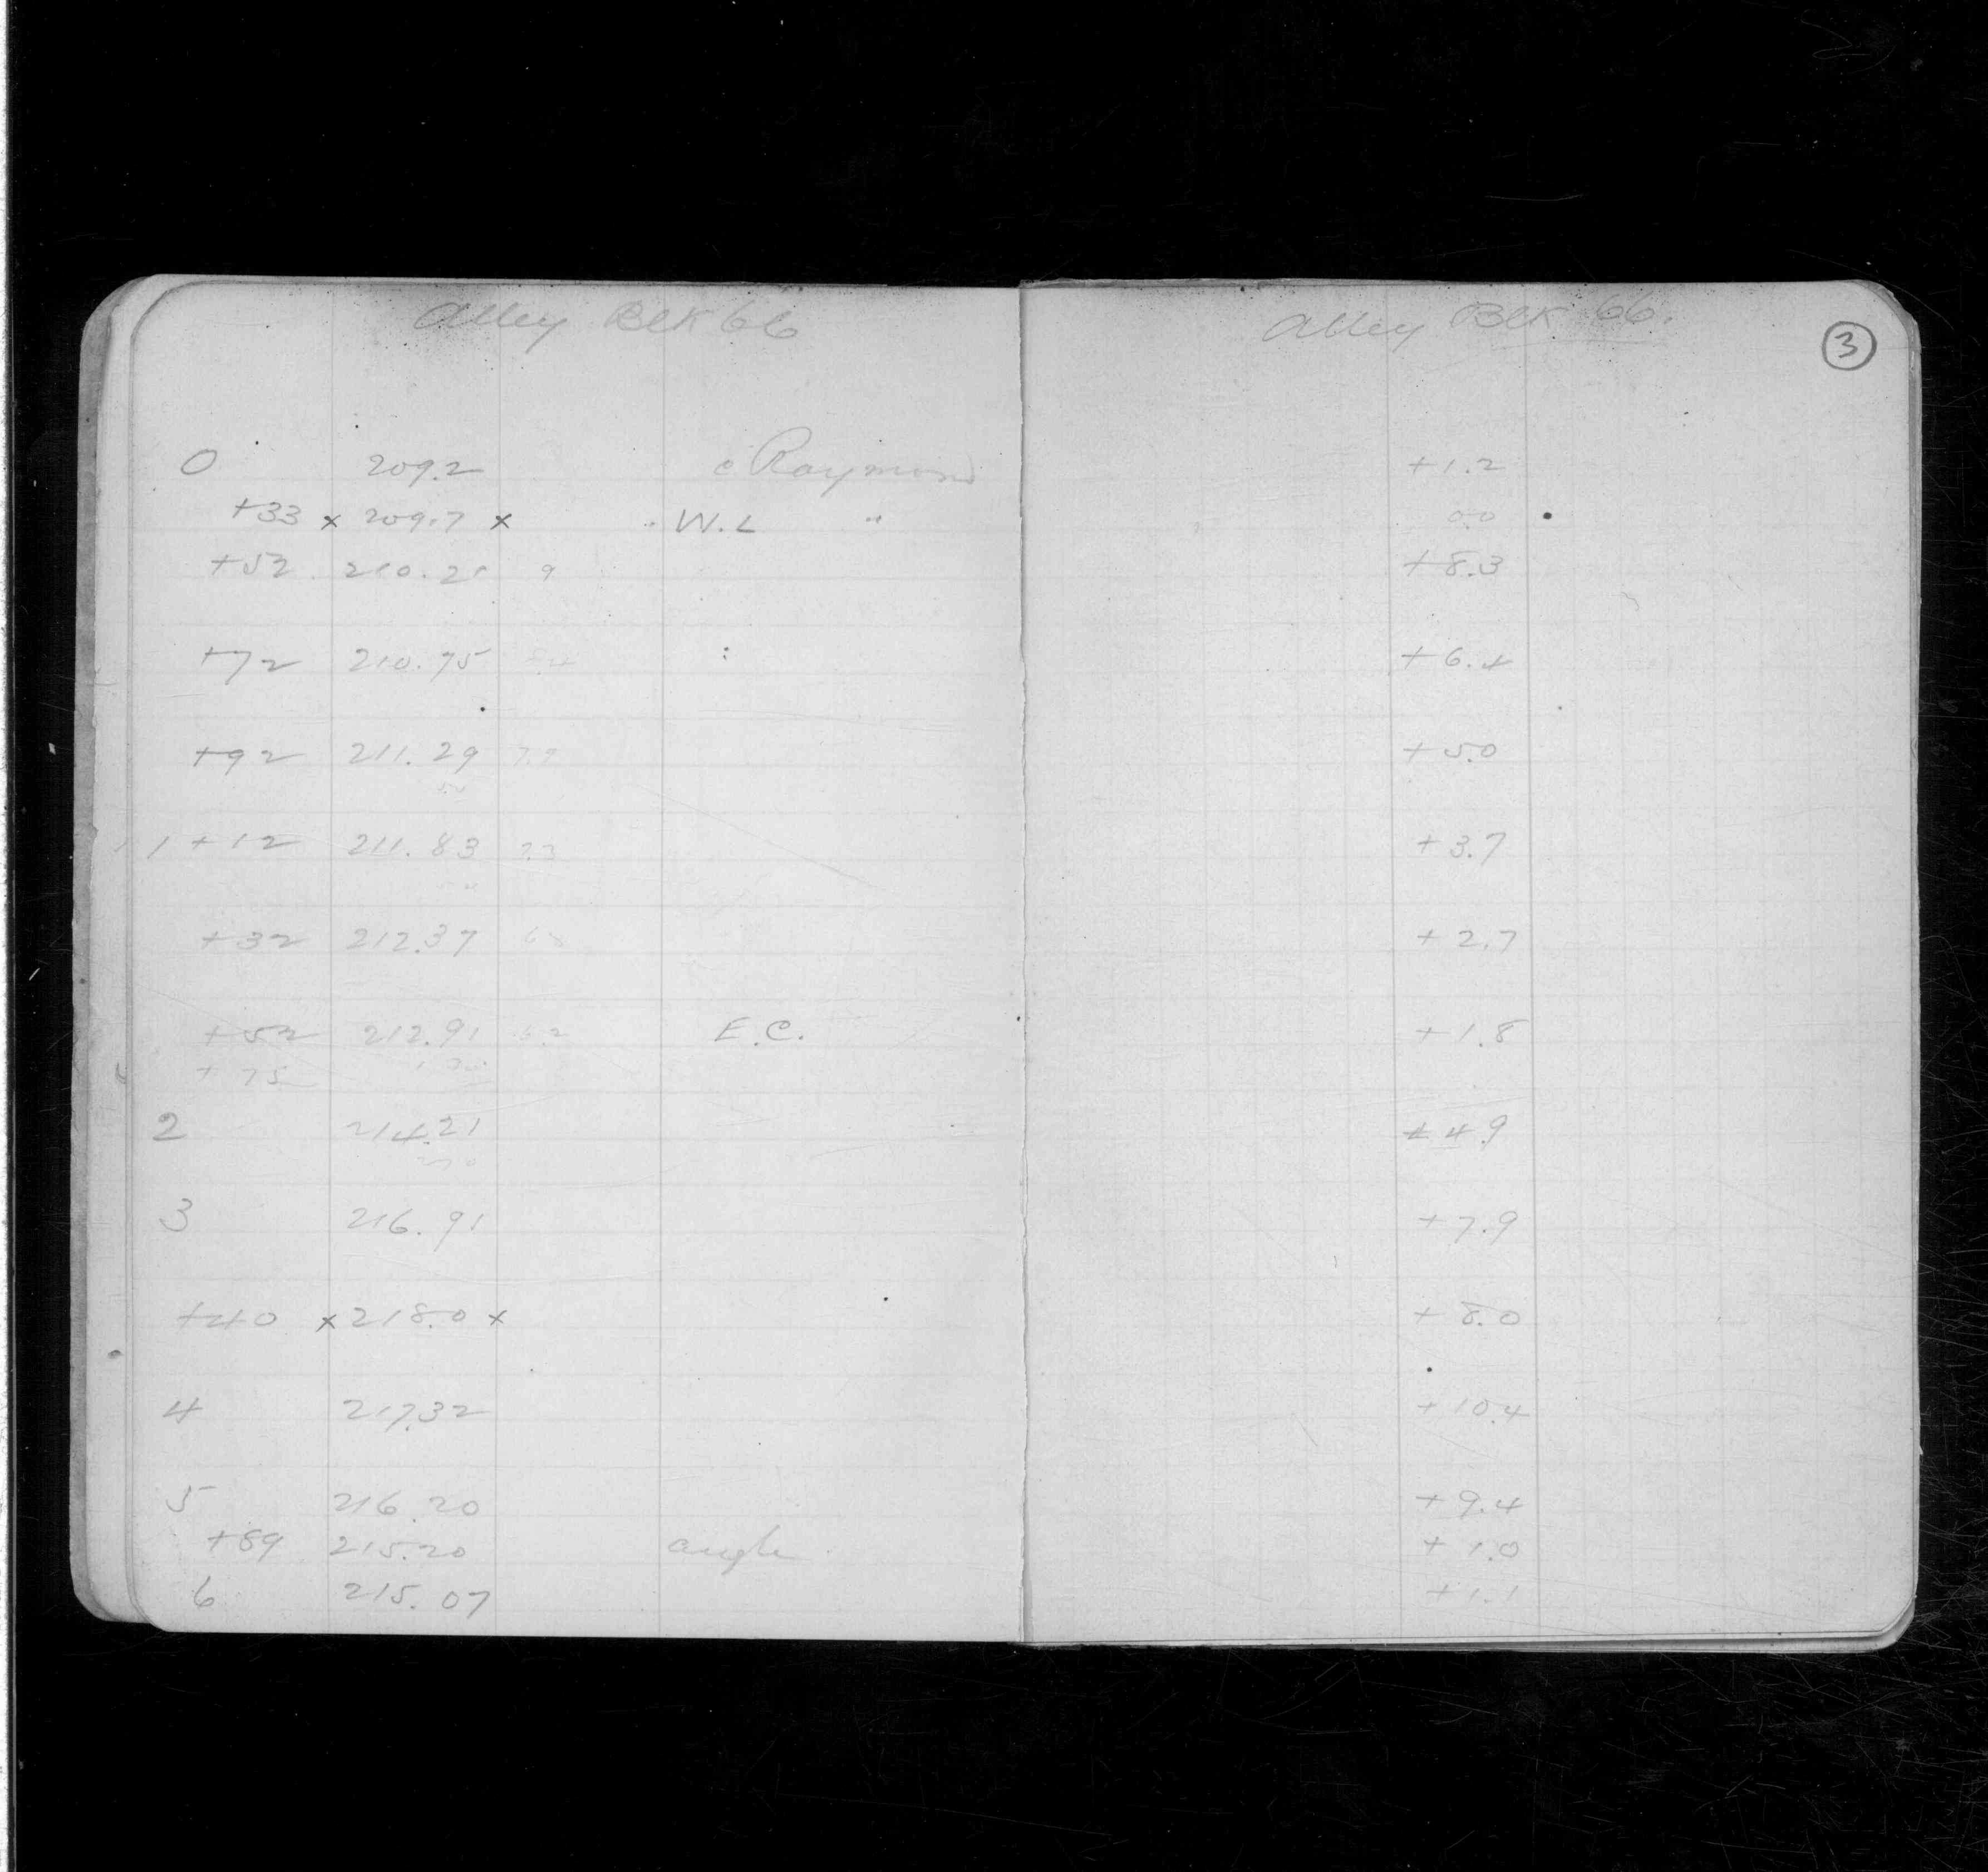 Alley Blk 66
0 209.2 c Raymond
+33 x 209.7 x W.L "
+52 210.21 9
+72 210.75
+92 211.29
1 +12 211.83 7.3
+32 212.37
+52 212.91 E.C.
+75
2 214.21
3 216.91
+40 x 218.0 x
4 217.32
5 216.20
+89 215.20 angle
6 215.07
Alley Blk 66.
3
+1.2
0.0
+8.3
+6.4
+5.0
+3.7
+2.7
+1.8
+4.9
+7.9
+8.0
+10.4
+9.4
+1.0
+1.1